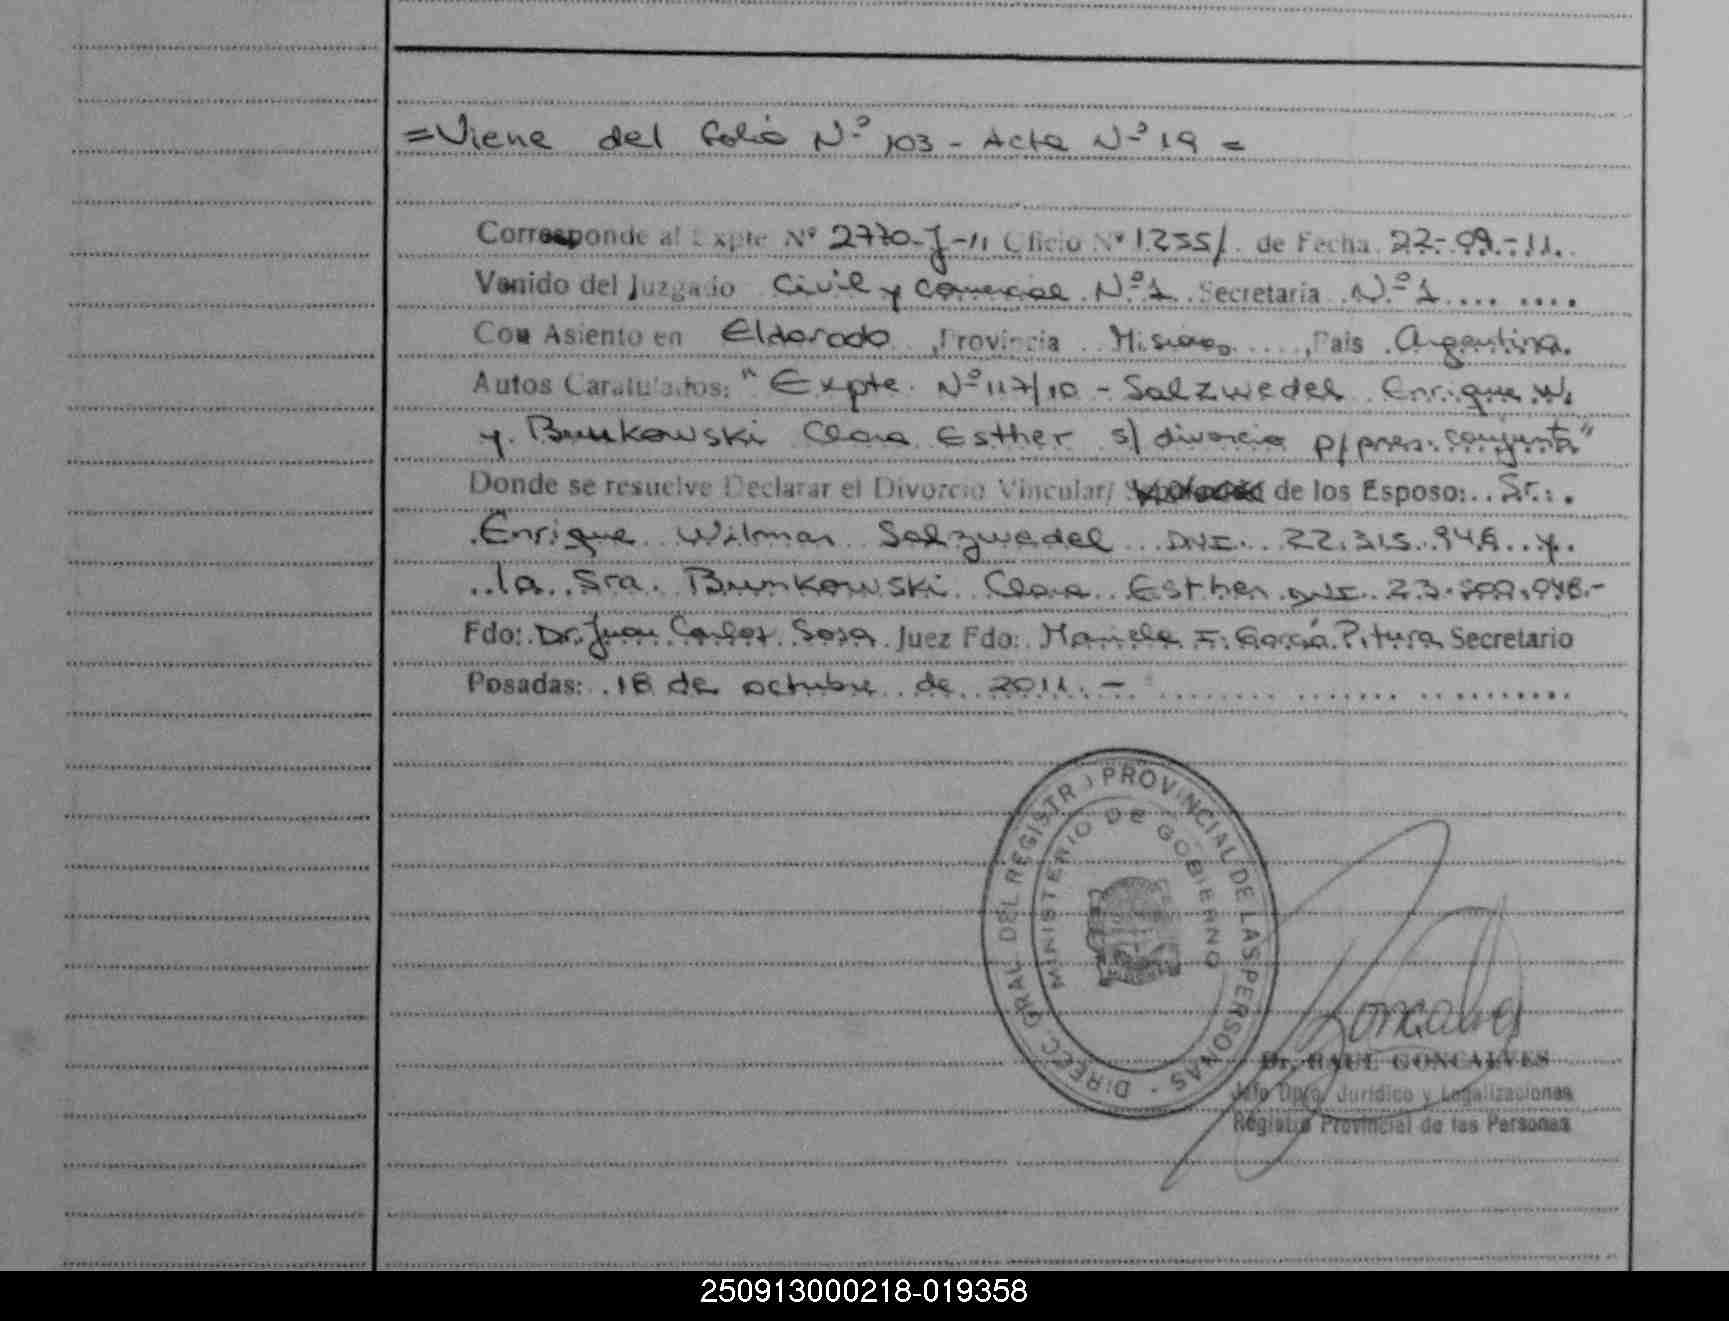 =Viene del folio Nº 103 - Acta Nº 19 =
Corresponde al Expte Nº 2770-J-11 Oficio Nº 1255/ de Fecha 22-09-11.
Venido del Juzgado Civil y Comercial Nº 1 Secretaría Nº 1
Con Asiento en Eldorado, Provincia Misiones, País Argentina.
Autos Caratulados: "Expte. Nº 117/10 - Salzwedel Enrique W.
y Bunkowski Clara Esther s/ divorcio p/ pres. conjunta"
Donde se resuelve Declarar el Divorcio Vincular/ de los Esposo: Sr.
Enrique Wilmar Salzwedel DNI. 22.315.949 y
la Sra. Bunkowski Clara Esther DNI
Fdo: Dr. Juan Carlos Sosa Juez Fdo: Mariela F. García Pitura Secretario
Posadas: 18 de octubre de 2011.-
DIREC. GRAL DEL REGISTRO PROVINCIAL DE LAS PERSONAS -
MINISTERIO DE GOBIERNO
Goncalves
Dr. RAUL GONCALVES
Jefe Dpto. Jurídico y Legalizaciones
Registro Provincial de las Personas
250913000218-019358